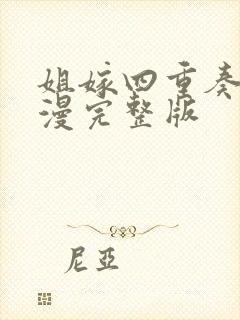 姐嫁四重奏
漫完整版
尼亞